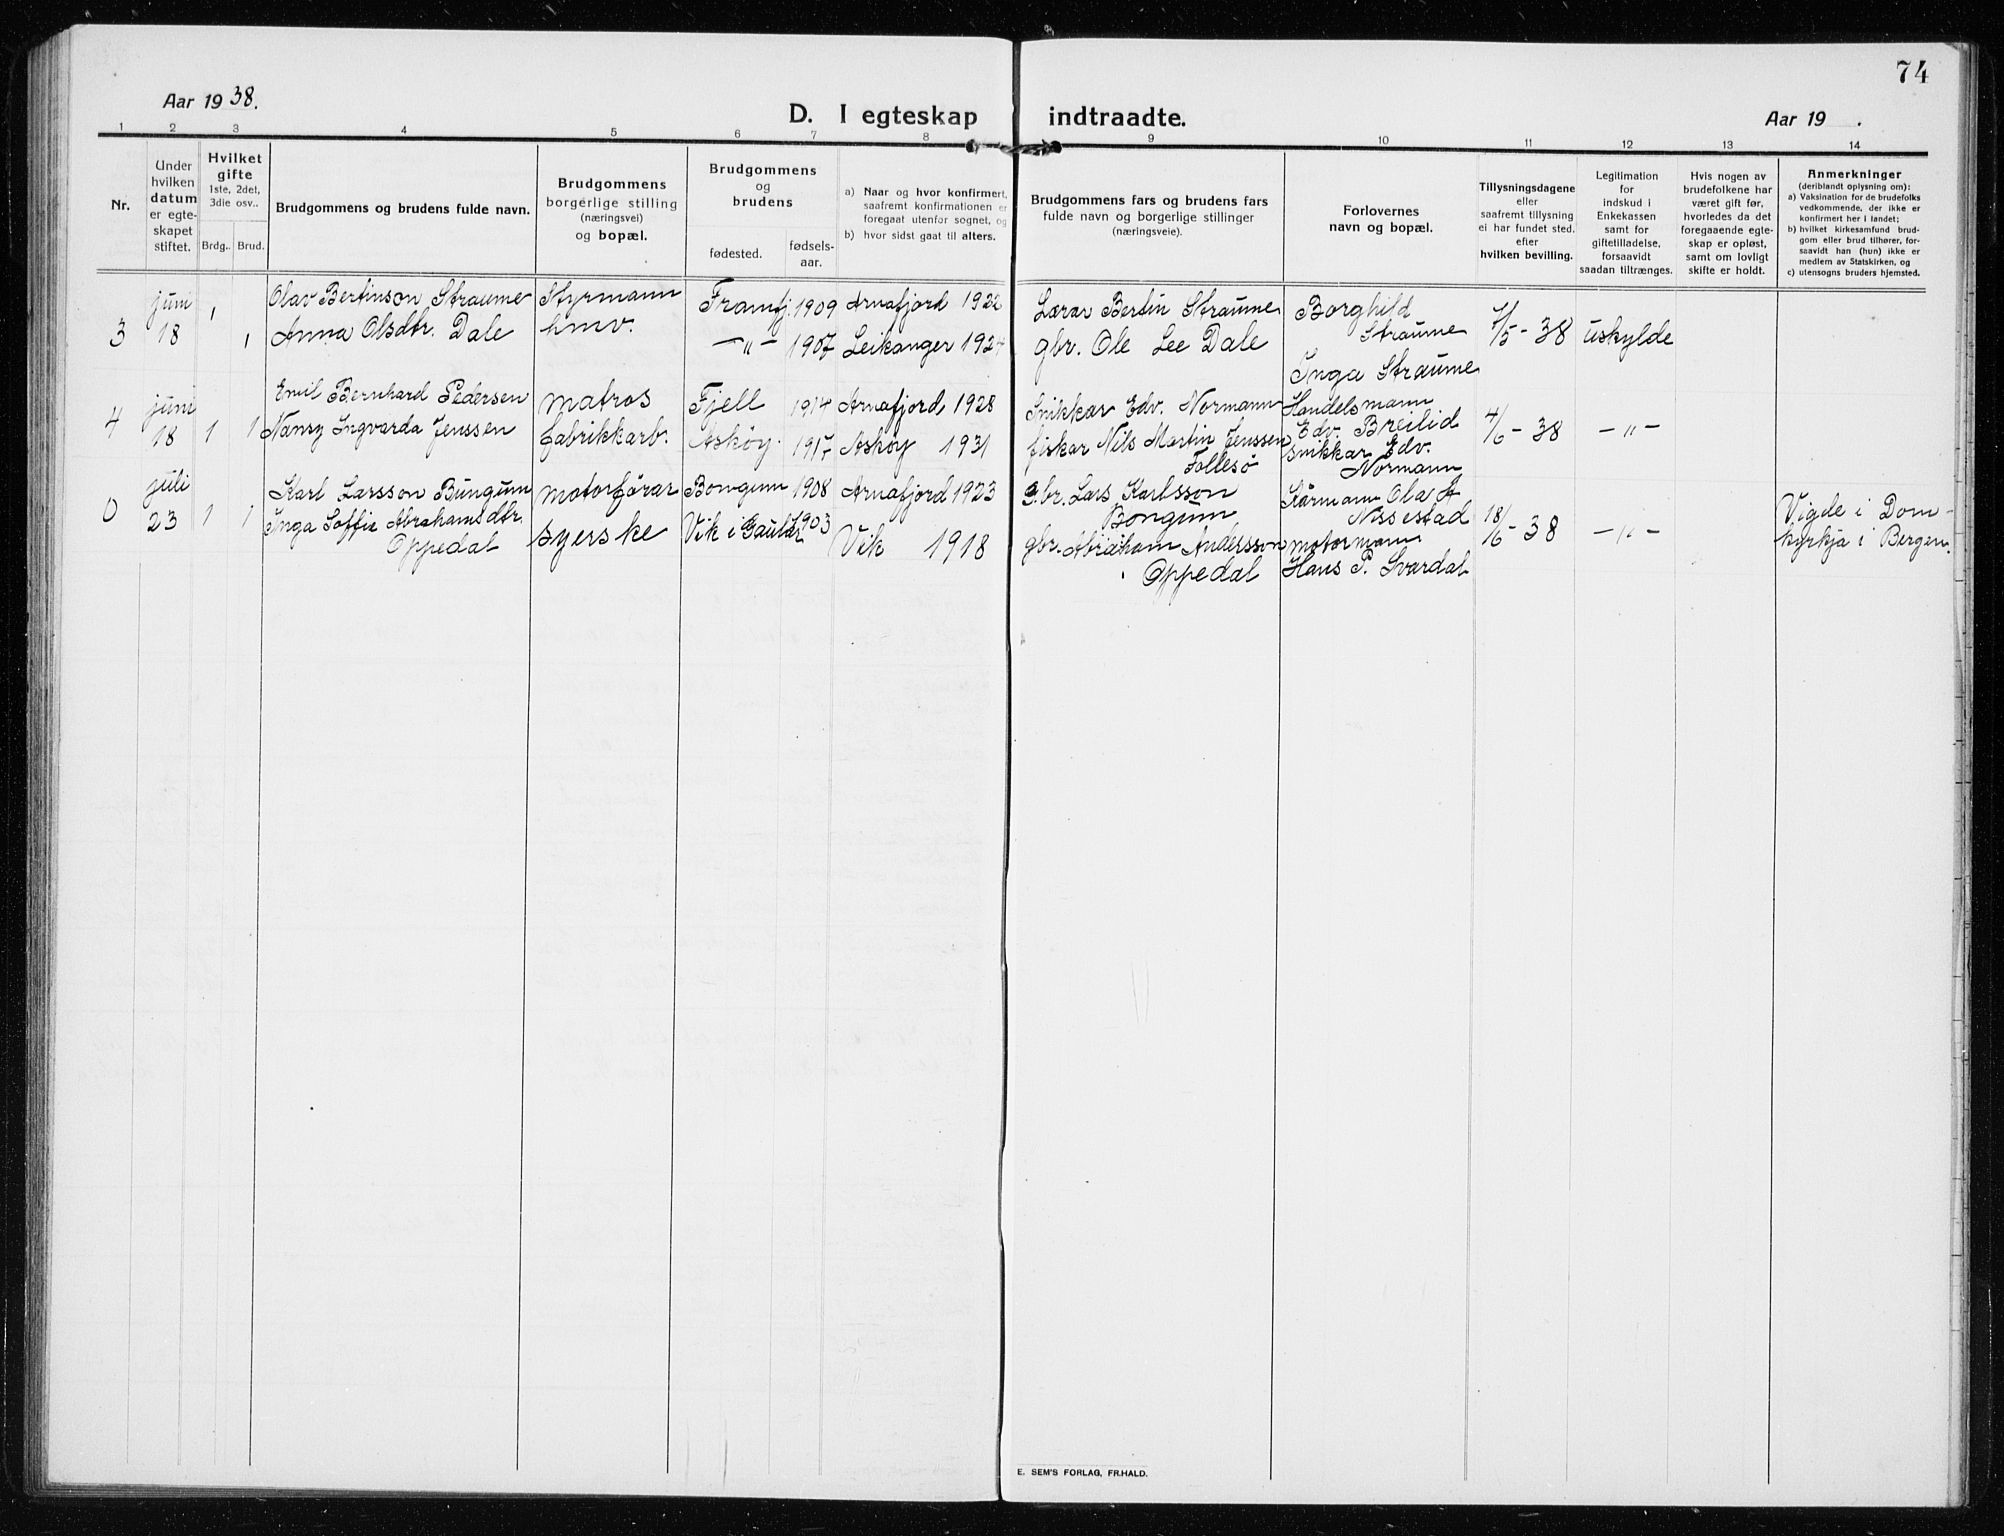 74
Aar 1938.
D. I egteskap indtraadte.
Aar 19 .
1 2 3 4 5 6 7 8 9 10 11 12 13 14
Nr.
Under
hvilken
datum
er egte-
skapet
stiftet.
Hvilket
gifte
1ste, 2det,
3die osv..
Brdg.. Brud.
Brudgommens og brudens fulde navn.
Brudgommens
borgerlige stilling
(næringsvei)
og bopæl.
Brudgommens
og
brudens
fødested.
fødsels-
aar.
a) Naar og hvor konfirmert,
saafremt konfirmationen er
foregaat utenfor sognet, og
b) hvor sidst gaat til alters.
Brudgommens fars og brudens fars
fulde navn og borgerlige stillinger
(næringsveie).
Forlovernes
navn og bopæl.
Tillysningsdagene
eller
saafremt tillysning
ei har fundet sted.
efter
hvilken bevilling.
Legitimation
for
indskud i
Enkekassen
samt for
giftetilladelse,
forsaavidt
saadan tiltrænges.
Hvis nogen av
brudefolkene har
været gift før,
hvorledes da det
foregaaende egte-
skap er opløst,
samt om lovligt
skifte er holdt.
Anmerkninger
(deriblandt oplysning om):
a) Vaksination for de brudefolks
vedkommende, der ikke er
konfirmert her i landet;
b) hvilket kirkesamfund brud-
gom eller brud tilhører, for-
saavidt han (hun) ikke er
medlem av Statskirken, og
c) utensogns bruders hjemsted.
3
juni
18
1
1
Olav Bertinson Straume
Anna Olsdtr. Dale
Styrmann
hmv.
Framfj. 1909
—"— 1907
Arnafjord 1922
Leikanger 1924
Lærar Bertin Straume
gbr. Ole Lee Dale
Borghild
Straume
Inga Straume
/5 - 38
uskylde
4
juni
18
1
1
Emil Bernhard Pedersen
Nansy Ingvarda Jenssen
matros
fabrikkarb.
Fjell 1914
Askøy. 1917
Arnafjord 1928
Askøy 1931
Snikkar Edv. Normann
fiskar Nils Martin Jenssen
Follesø
Handelsmann
Edv. Breilid
Snikkar Edv.
Normann
4/6 - 38
—"—
0
juli
23
1
1
Karl Larsson Bungum
Inga Soffie Abrahamsdtr.
Oppedal
motorførar
syerske
Bongum 1908
Vik i Gaular 1903
Arnafjord 1923
Vik 1918
Gbr. Lars Karlsson
Bongum
gbr. Abraham Andersson
Oppedal
Olav A
Nissestad
motormann
Hans P. Svardal
18/6 - 38
—"—
Vigde i Dom-
kyrkja i Bergen.
E. SEM'S FORLAG, FR.HALD.